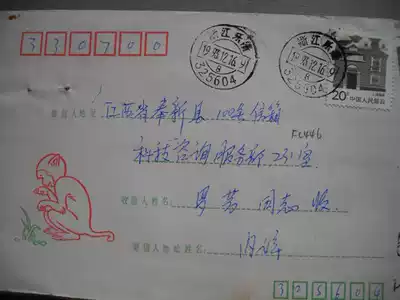 330700
浙江乐清
19 12.16.9
8
325604
浙江乐清
12.16.9
8
325604
20分 中国人民邮政
收信人地址: 江西省奉新县 100号信箱
科技咨询服务部 231室
收信人姓名: 同志收
寄信人地址姓名: 内详
325604